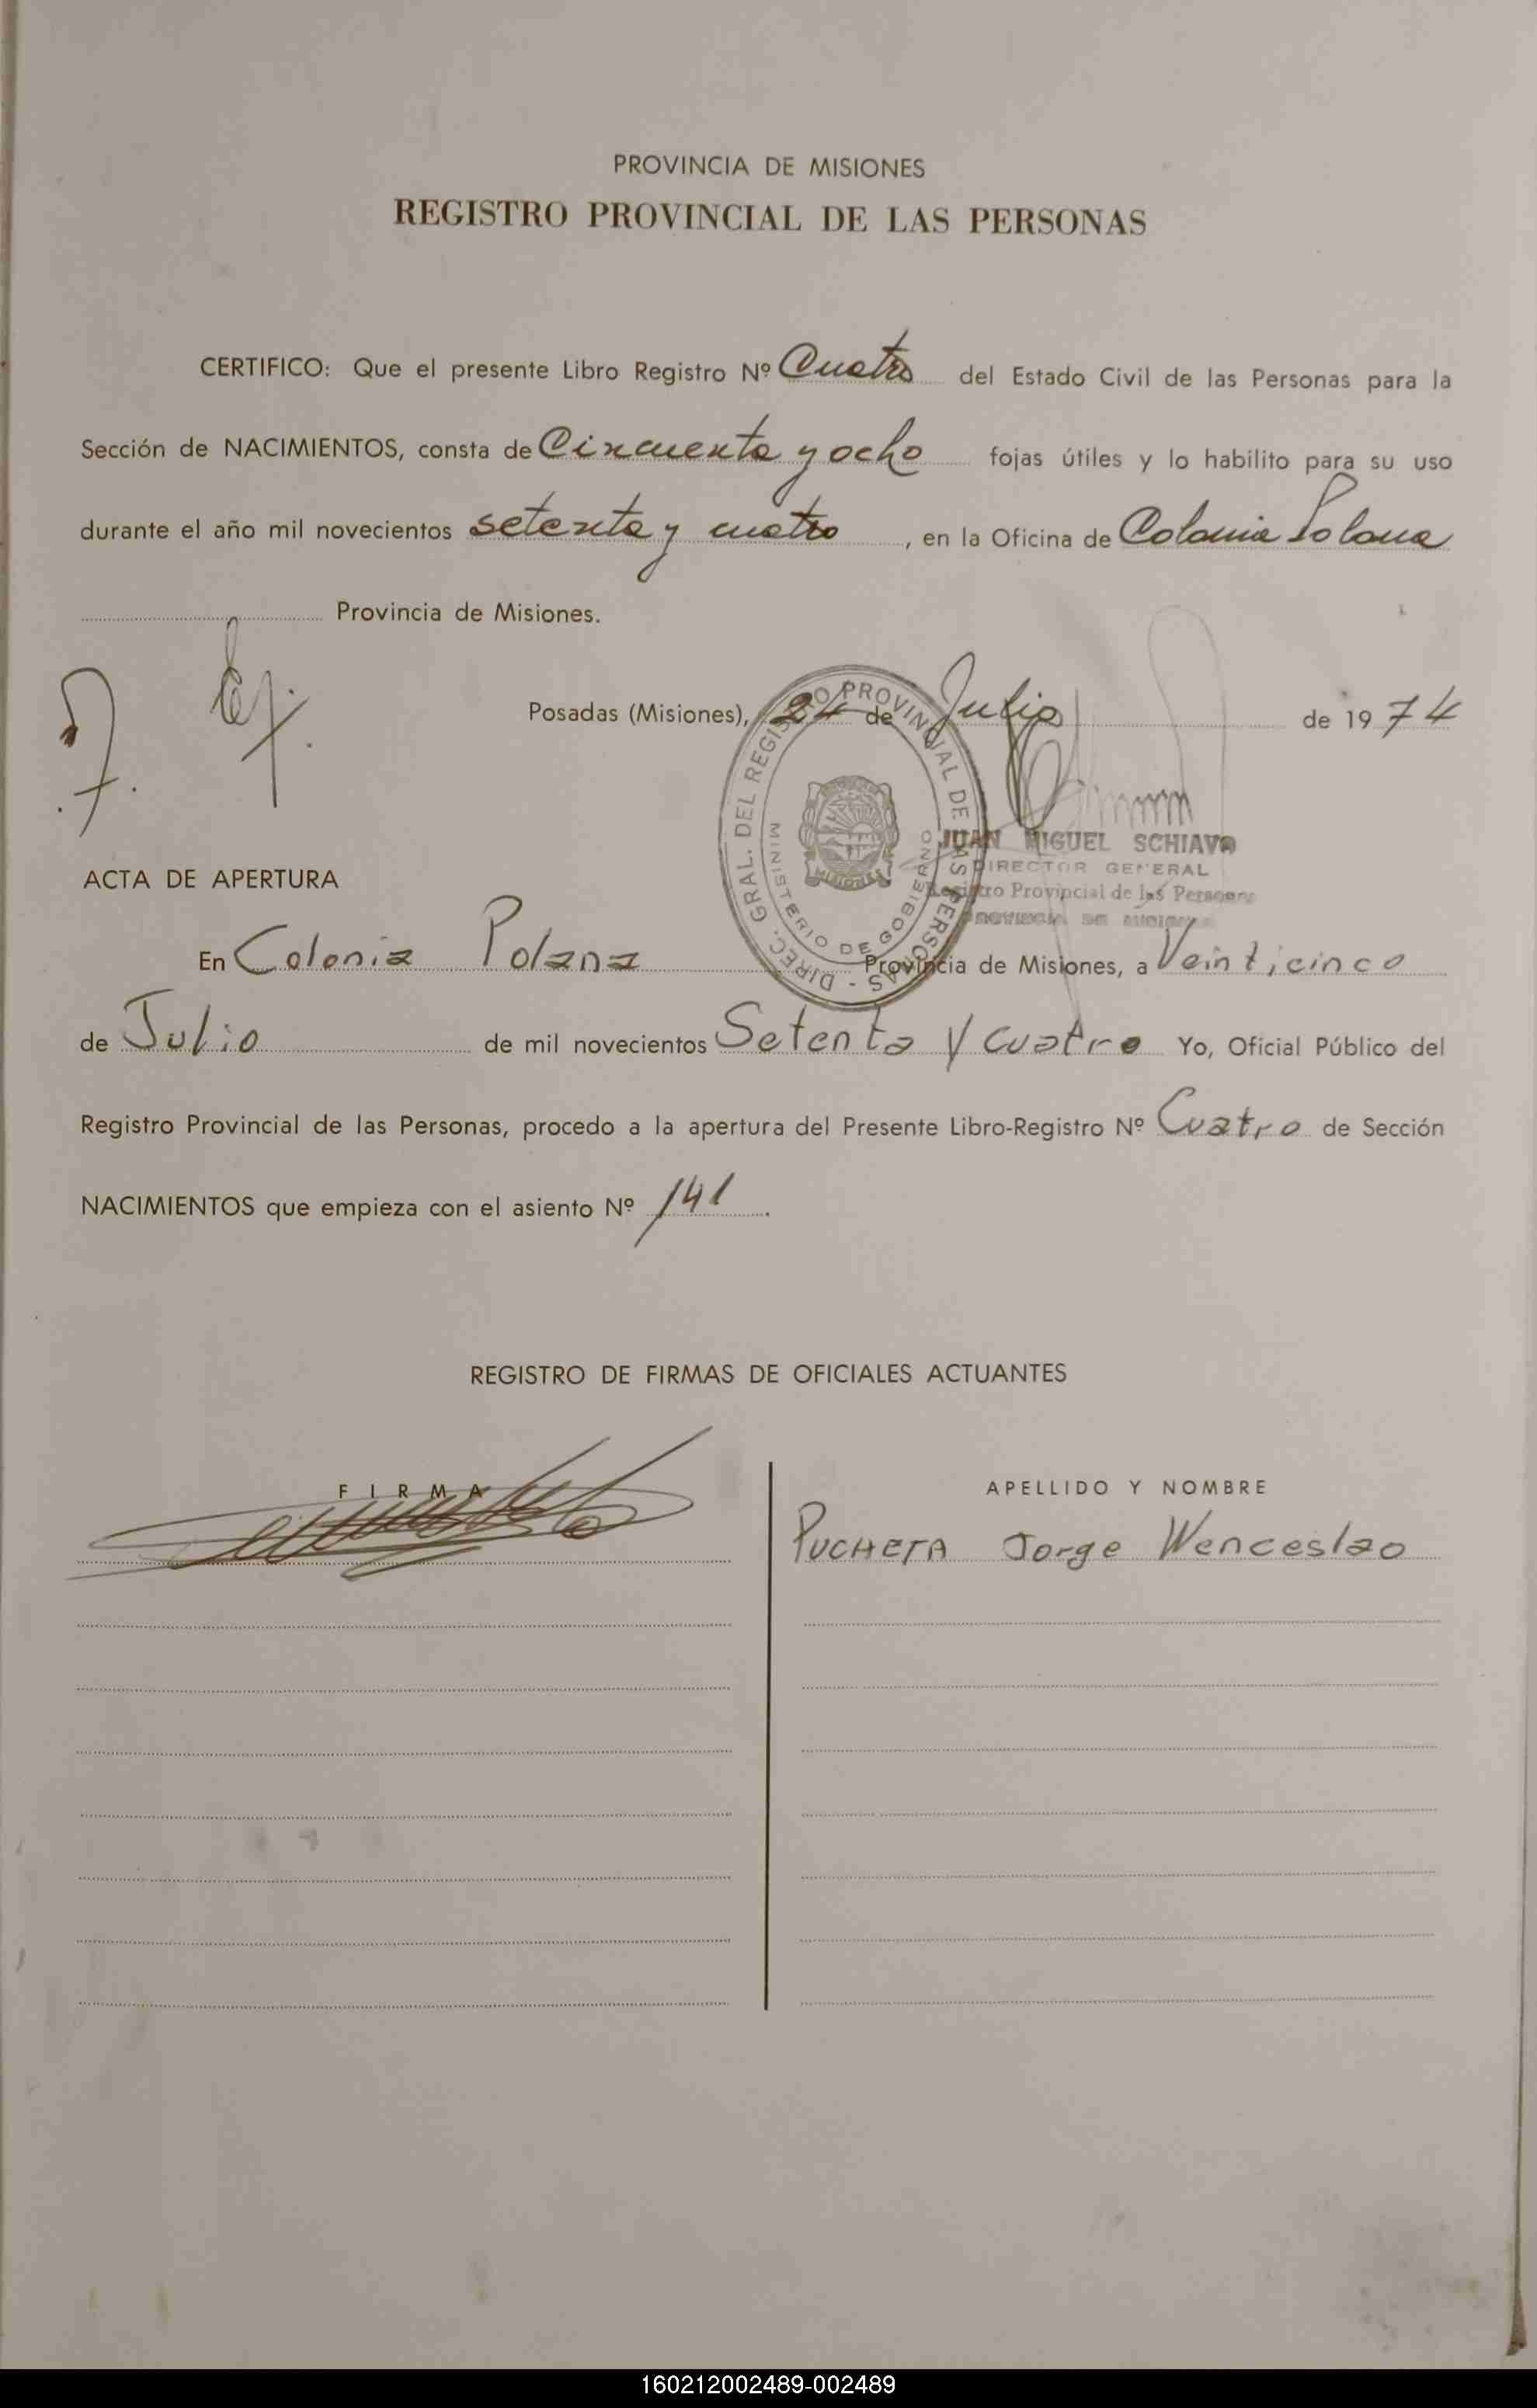 PROVINCIA DE MISIONES
REGISTRO PROVINCIAL DE LAS PERSONAS
CERTIFICO: Que el presente Libro Registro Nº Cuatro del Estado Civil de las Personas para la
Sección de NACIMIENTOS, consta de Cincuenta y ocho fojas útiles y lo habilito para su uso
durante el año mil novecientos setenta y cuatro, en la Oficina de Colonia Polana
Provincia de Misiones.
Posadas (Misiones), 24 de Julio de 1974
DIREC. GRAL. DEL REGISTRO PROVINCIAL DE LAS PERSONAS -
MINISTERIO DE GOBIERNO
MISIONES
JUAN MIGUEL SCHIAVO
DIRECTOR GENERAL
Registro Provincial de las Personas
PROVINCIA DE MISIONES
ACTA DE APERTURA
En Colonia Polana Provincia de Misiones, a Veinticinco
de Julio de mil novecientos Setenta y Cuatro Yo, Oficial Público del
Registro Provincial de las Personas, procedo a la apertura del Presente Libro-Registro Nº Cuatro de Sección
NACIMIENTOS que empieza con el asiento Nº 141.
REGISTRO DE FIRMAS DE OFICIALES ACTUANTES
FIRMA
APELLIDO Y NOMBRE
PUCHETA Jorge Wenceslao
160212002489-002489